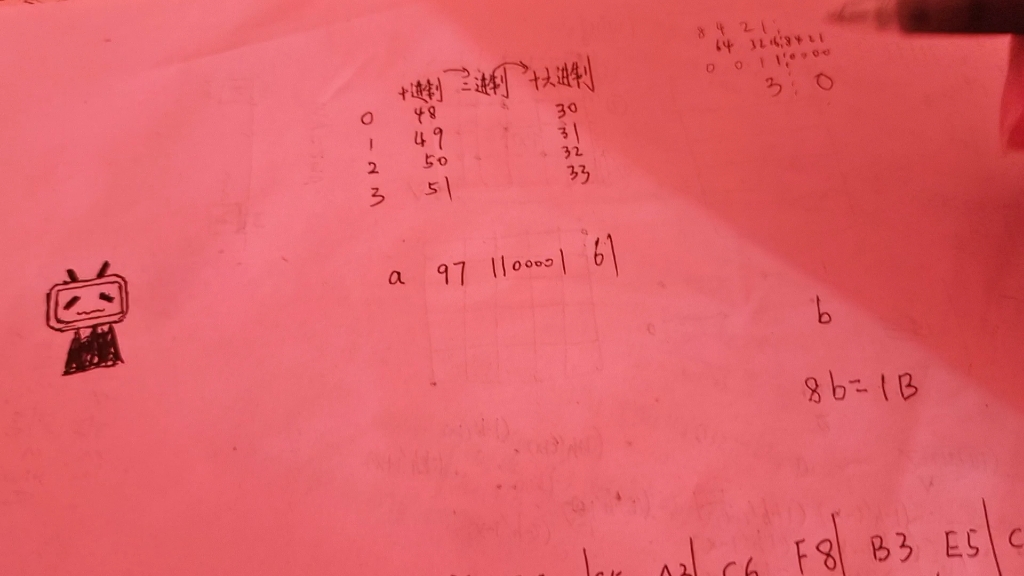 8 4 2 1
64 32 16 8 4 2 1
0 0 1 1 0000
3 0
十进制 二进制 十六进制
0 48 30
1 49 31
2 50 32
3 51 33
a 97 1100001 61
b
8b=1B
F8 B3 E5